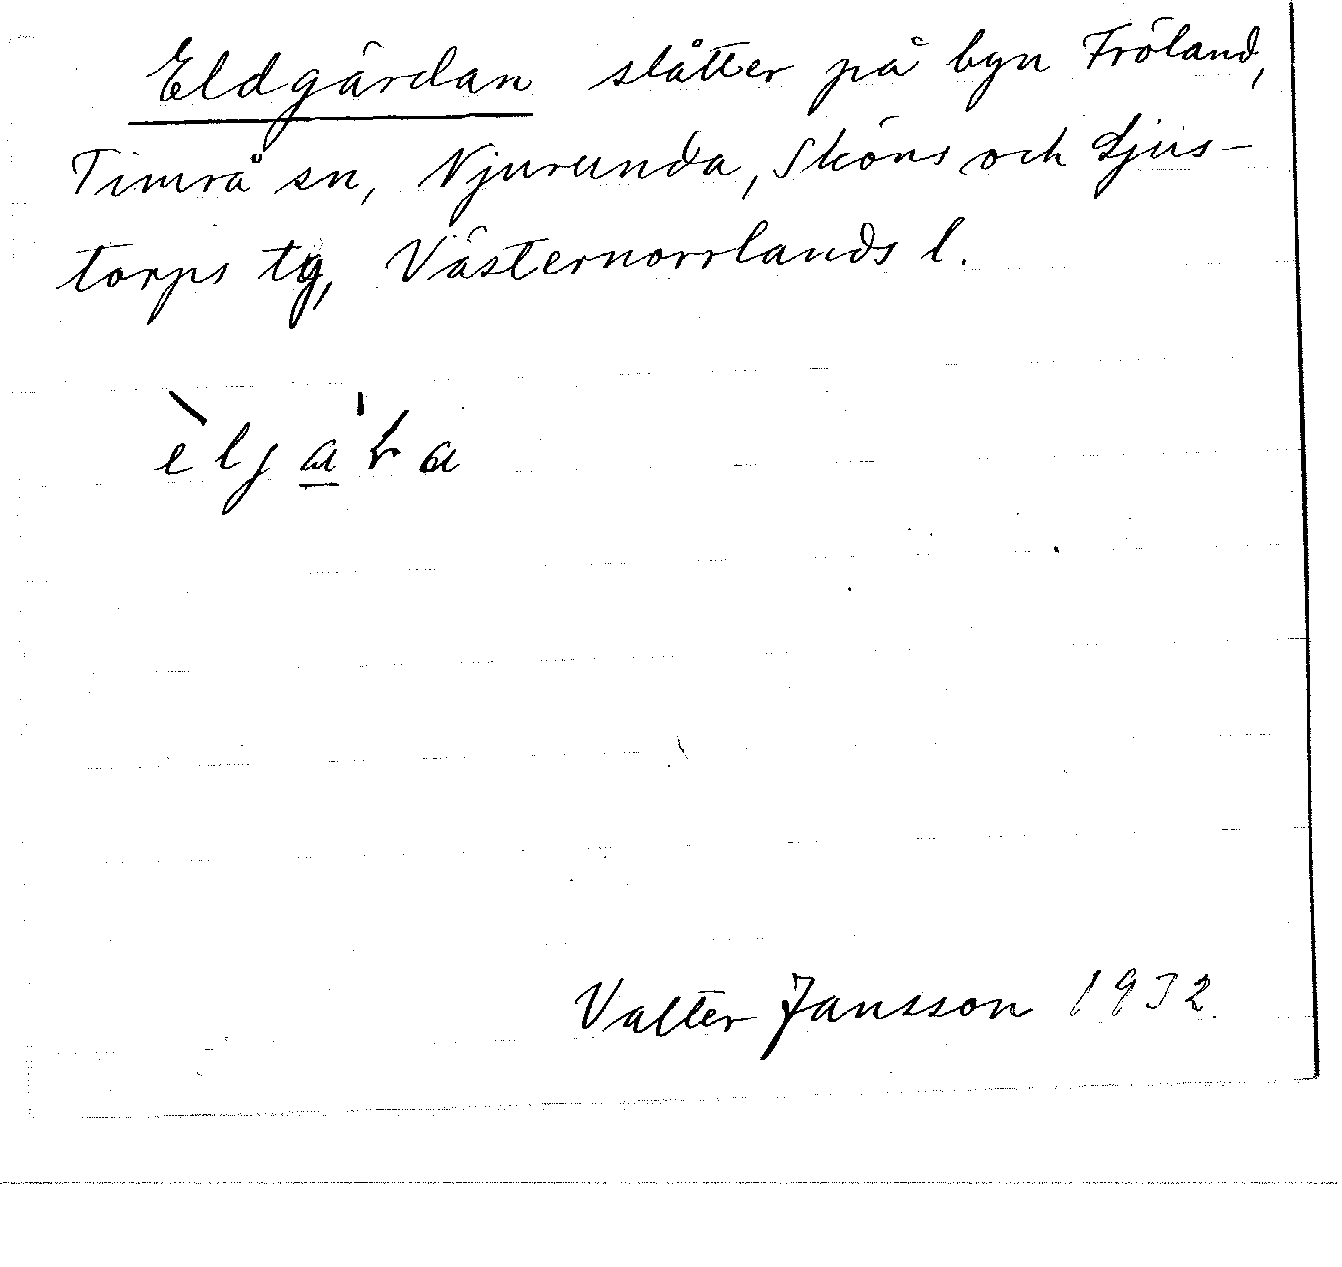 Eldgärdan slåtter på byn Fröland,
Timrå sn, Njurunda, Sköns och Ljus-
torps tg, Västernorrlands l.
Valter Jansson 1932.